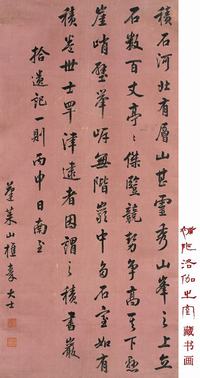 積石河北有層山甚靈秀山峯之上立
石數百丈亭亭傑豎競勢爭高其下懸
崖峭壁舉岸無階嶺中多石室如有
積卷世士罕津逮者因謂之積書巖
拾遺記一則丙申日南至
蓬萊山樵書大士
藏书画